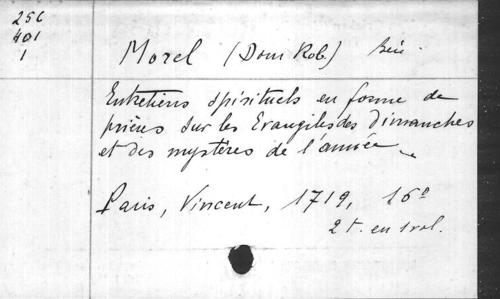 256
401
1
Morel (Dom Rob.) Bén.
Entretiens spirituels en forme de
prières sur les Evangiles des Dimanches
et des mystères de l'année
Paris, Vincent, 1719, 16º
2 t. en 1 vol.